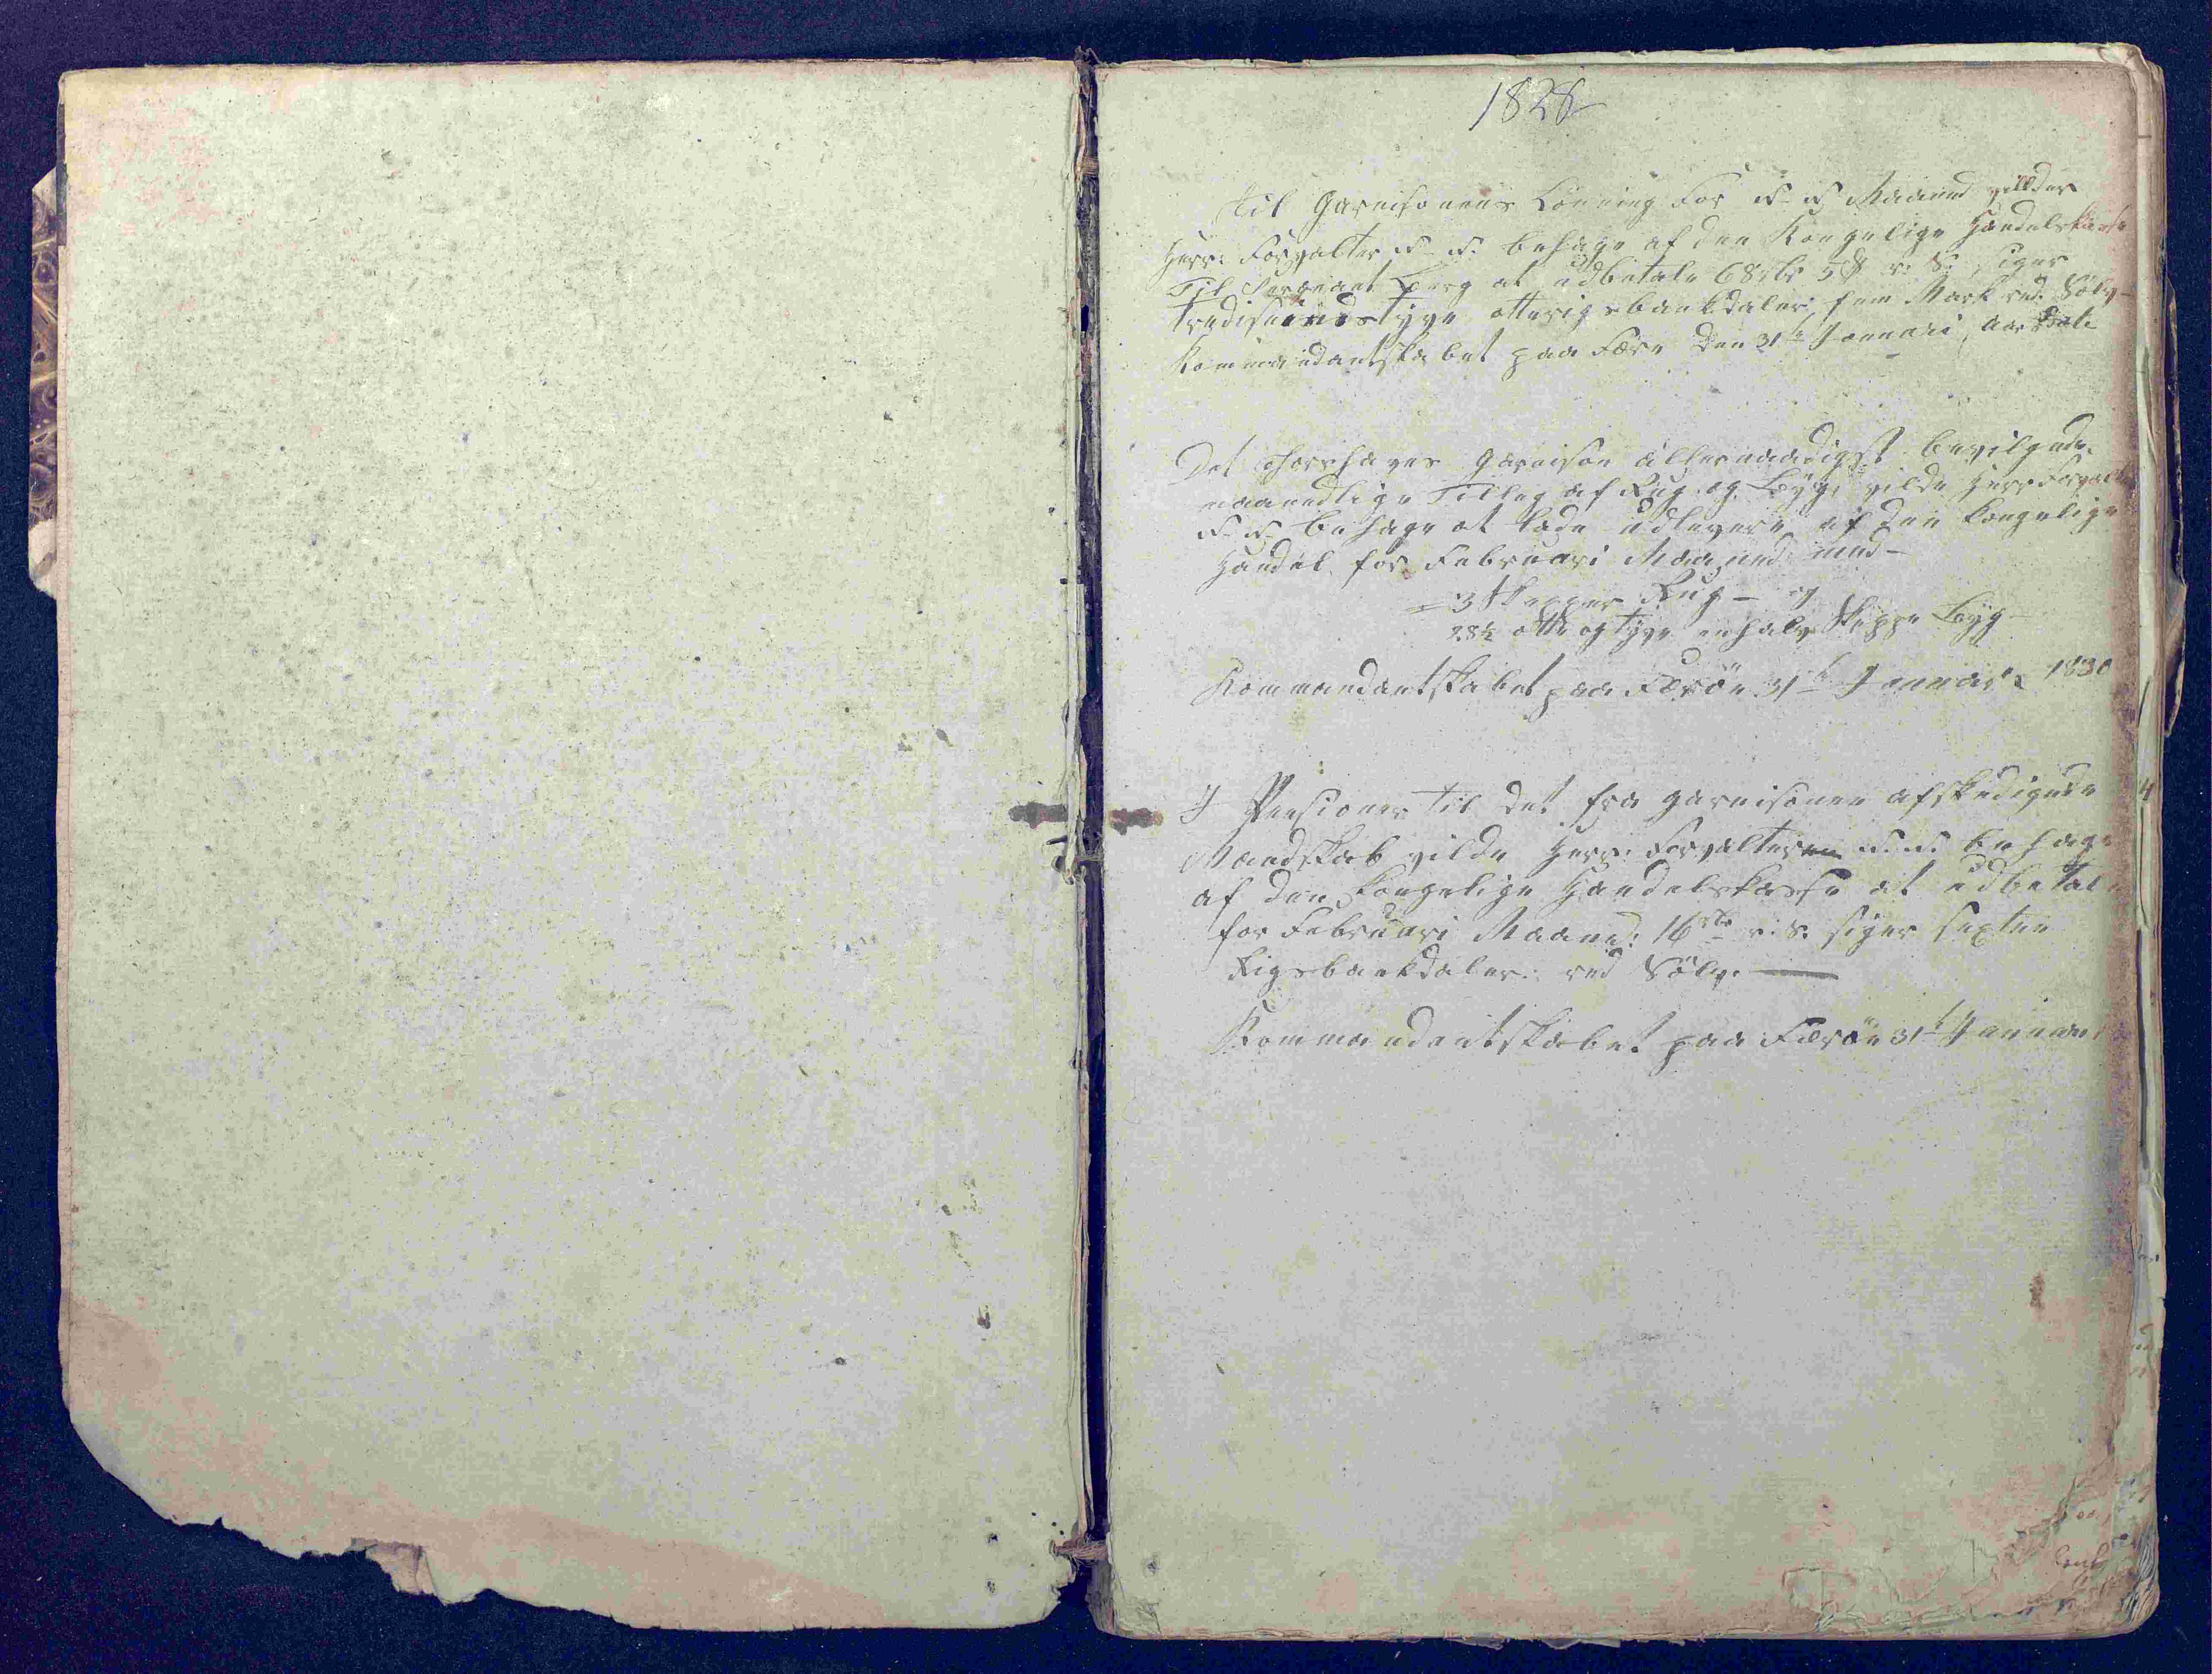 1828
Til Garnisonens Lønning for N. N. Maaned vilde
Herr: Forvalter N. N. behage af den Kongelige Handelskasse
Til Sergeant Berg at udbetale 68 rbr 5 r: S: siger
tredisindstyve otte rigsbankdaler fem Mark red. Sølv-
Kommandantskabet paa Færø den 31t Januari, Aar
Det Thorshavns Garnison allernaadigst bevilgede
maanedlige Tilleg af Rug og Byg, vilde Herr Forvalter
N. N. behage at lade udlevere af den kongelige
Handel for Februari Maaned med-
3 Skepper Rug - og
28½ otte og tyve en halv Skeppe Byg
Kommandantskabet paa Færöe 31t Januari 1830
I Pensioner til det fra Garnisonen afskedigede
Mandskab vilde Herr: Forvalteren N: N: behage
af den kongelige Handelskasse at udbetale
for Februari Maaned: 16 rbr r: S: siger sexten
Rigsbankdaler: red Sölv.
Kommandantskabet paa Færöe 31t Januari